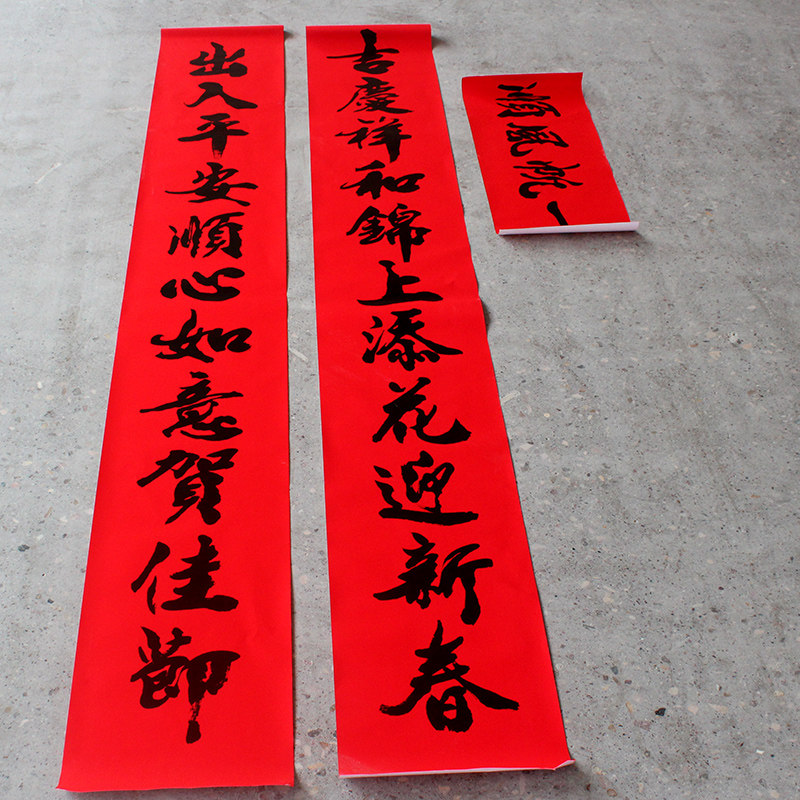 吉慶祥和錦上添花迎新春
出入平安順心如意賀佳節
一帆風順